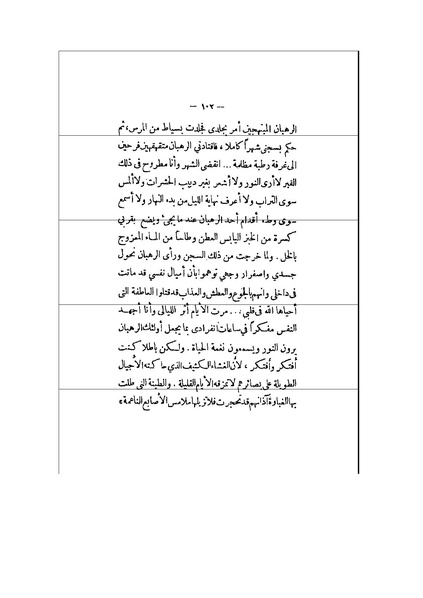 — ١٠٢ —
الرهبان المبتهجين أمر بجلدي فجلدت بسياط من المرس، ثم
حكم بسجني شهراً كاملا، فاقتادني الرهبان متقهقهين فرحين
الى غرفة رطبة مظلمة ... انقضى الشهر وأنا مطروح في ذلك
القبر لا أرى النور ولا أشعر بغير دبيب الحشرات ولا ألمس
سوى التراب ولا أعرف نهاية الليل من بدء النهار ولا أسمع
سوى وطء أقدام أحد الرهبان عند ما يجيء ويضع بقربي
كسرة من الخبز اليابس العطن وطاسا من الماء الممزوج
بالخل . ولما خرجت من ذلك السجن ورأى الرهبان نحول
جسدي واصفرار وجهي توهموا بأن أميال نفسي قد ماتت
في داخلي وانهم بالجوع والعطش والعذاب قد قتلوا العاطفة التي
أحياها الله في قلبي ... مرت الأيام أثر الليالى وأنا أجهد
النفس مفكراً في ساعات انفرادي بما يجعل أولئك الرهبان
يرون النور ويسمعون نغمة الحياة . ولكن باطلا كنت
أفتكر وأفتكر ، لأن الغشاء الكثيف الذي حاكته الأجيال
الطويلة على بصائرهم لا تمزقه الأيام القليلة . والطينة التى طلت
بها الغباوة آذانهم قد تحجرت فلا تزيلها ملامس الأصابع الناعمة »